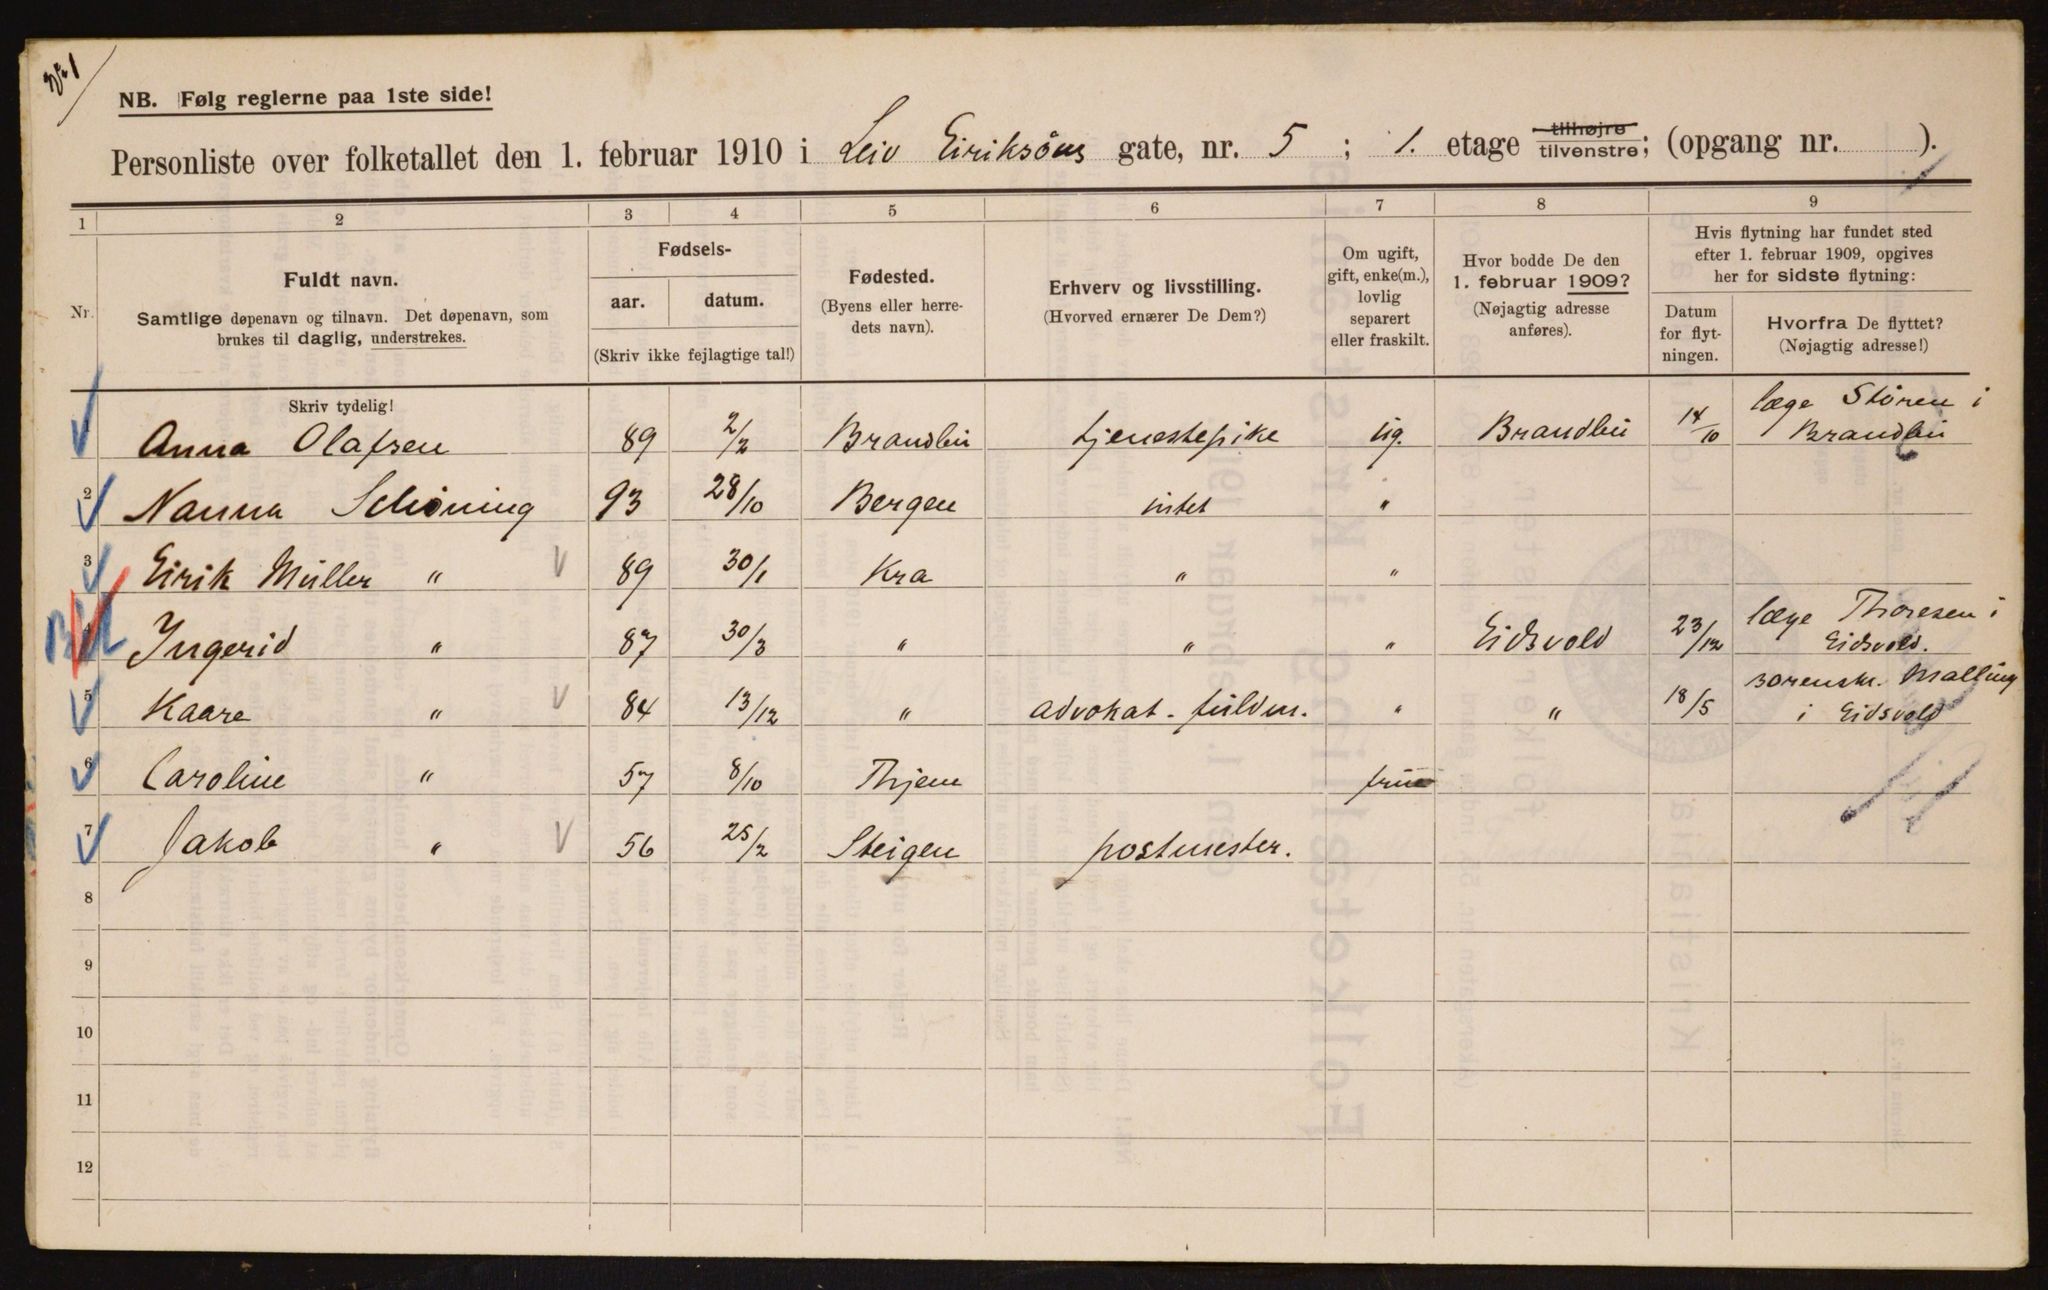 No 1
NB. Følg reglerne paa 1ste side!
Personliste over folketallet den 1. februar 1910 i Leiv Eiriksøns gate, nr. 5 ; 1. etage tilhøjre tilvenstre; (opgang nr. ).
1 2 3 4 5 6 7 8 9
Nr.
Fuldt navn.
Samtlige døpenavn og tilnavn. Det døpenavn, som
brukes til daglig, understrekes.
Fødsels-
aar. datum.
(Skriv ikke fejlagtige tal!)
Fødested.
(Byens eller herre-
dets navn).
Erhverv og livsstilling.
(Hvorved ernærer De Dem?)
Om ugift,
gift, enke(m.),
lovlig
separert
eller fraskilt.
Hvor bodde De den
1. februar 1909?
(Nøjagtig adresse
anføres).
Hvis flytning har fundet sted
efter 1. februar 1909, opgives
her for sidste flytning:
Datum
for flyt-
ningen.
Hvorfra De flyttet?
(Nøjagtig adresse!)
Skriv tydelig!
1 Anna Olafsen 89 2/2 Brandbu tjenestepike ug. Brandbu 14/10 læge Støren i Brandbu
2 Nanna Schøning 93 28/10 Bergen intet "
3 Eirik Müller " 89 30/1 Kra " "
4 Ingerid " 87 30/3 " " " Eidsvold 23/12 læge Thoresen i Eidsvold.
5 Kaare " 84 13/12 " advokat - fuldm. " " 18/5 sorenskr. Malling i Eidsvold
6 Caroline " 57 8/10 Thjem frue
7 Jakob " 56 25/2 Steigen postmester.
8
9
10
11
12